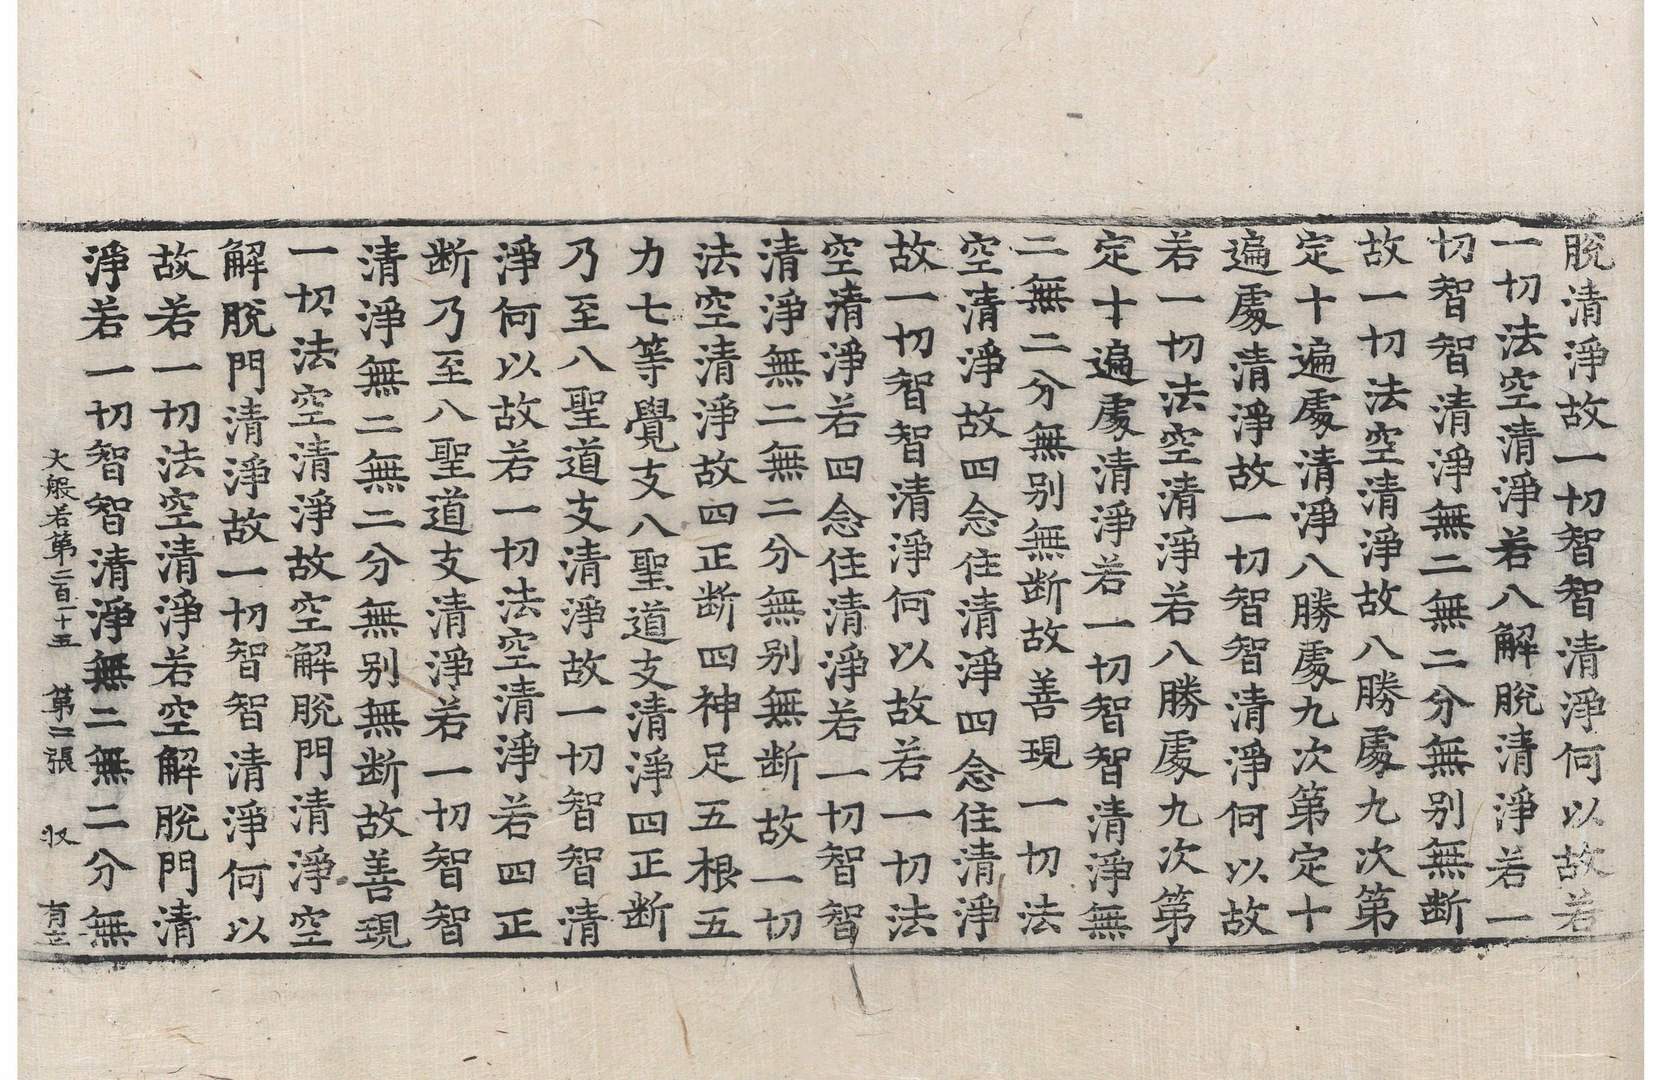 脫清淨故一切智智清淨何以故若
一切法空清淨若八解脫清淨若一
切智智清淨無二無二分無别無断
故一切法空清淨故八勝處九次第
定十遍處清淨八勝處九次第定十
遍處清淨故一切智智清淨何以故
若一切法空清淨若八勝處九次第
定十遍處清淨若一切智智清淨無
二無二分無别無断故善現一切法
空清淨故四念住清淨四念住清淨
故一切智智清淨何以故若一切法
空清淨若四念住清淨若一切智智
清淨無二無二分無别無断故一切
法空清淨故四正断四神足五根五
力七等覺支八聖道支清淨四正断
乃至八聖道支清淨故一切智智清
淨何以故若一切法空清淨若四正
断乃至八聖道支清淨若一切智智
清淨無二無二分無别無断故善現
一切法空清淨故空解脫門清淨空
解脫門清淨故一切智智清淨何以
故若一切法空清淨若空解脫門清
淨若一切智智清淨無二無二分無
大般若第二百一十五 第二張 収 有